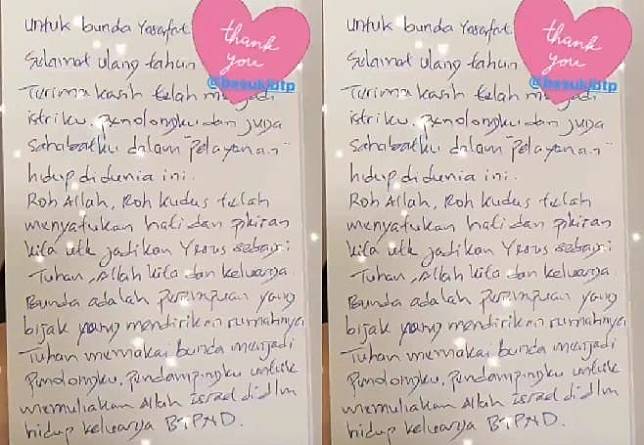 untuk bunda Yasafat
Selamat ulang tahun
Terima kasih telah menjadi
istriku, penolongku dan juga
sahabatku dalam "pelayanan"
hidup di dunia ini.
Roh Allah, Roh kudus telah
menyatukan hati dan pikiran
kita utk jadikan Yesus sebagai
Tuhan, Allah kita dan keluarga
Bunda adalah perempuan yang
bijak yang mendirikan rumahnya
Tuhan memakai bunda menjadi
Penolongku, pendampingku untuk
memuliakan Allah Israel didlm
hidup keluarga BTPND.
thank
you
@basukibtp
untuk bunda Yasafat
Selamat ulang tahun
Terima kasih telah menjadi
istriku, penolongku dan juga
sahabatku dalam "pelayanan"
hidup di dunia ini.
Roh Allah, Roh kudus telah
menyatukan hati dan pikiran
kita utk jadikan Yesus sebagai
Tuhan, Allah kita dan keluarga
Bunda adalah perempuan yang
bijak yang mendirikan rumahnya
Tuhan memakai bunda menjadi
Penolongku, pendampingku untuk
memuliakan Allah Israel didlm
hidup keluarga BTPND.
thank
you
@basukibtp